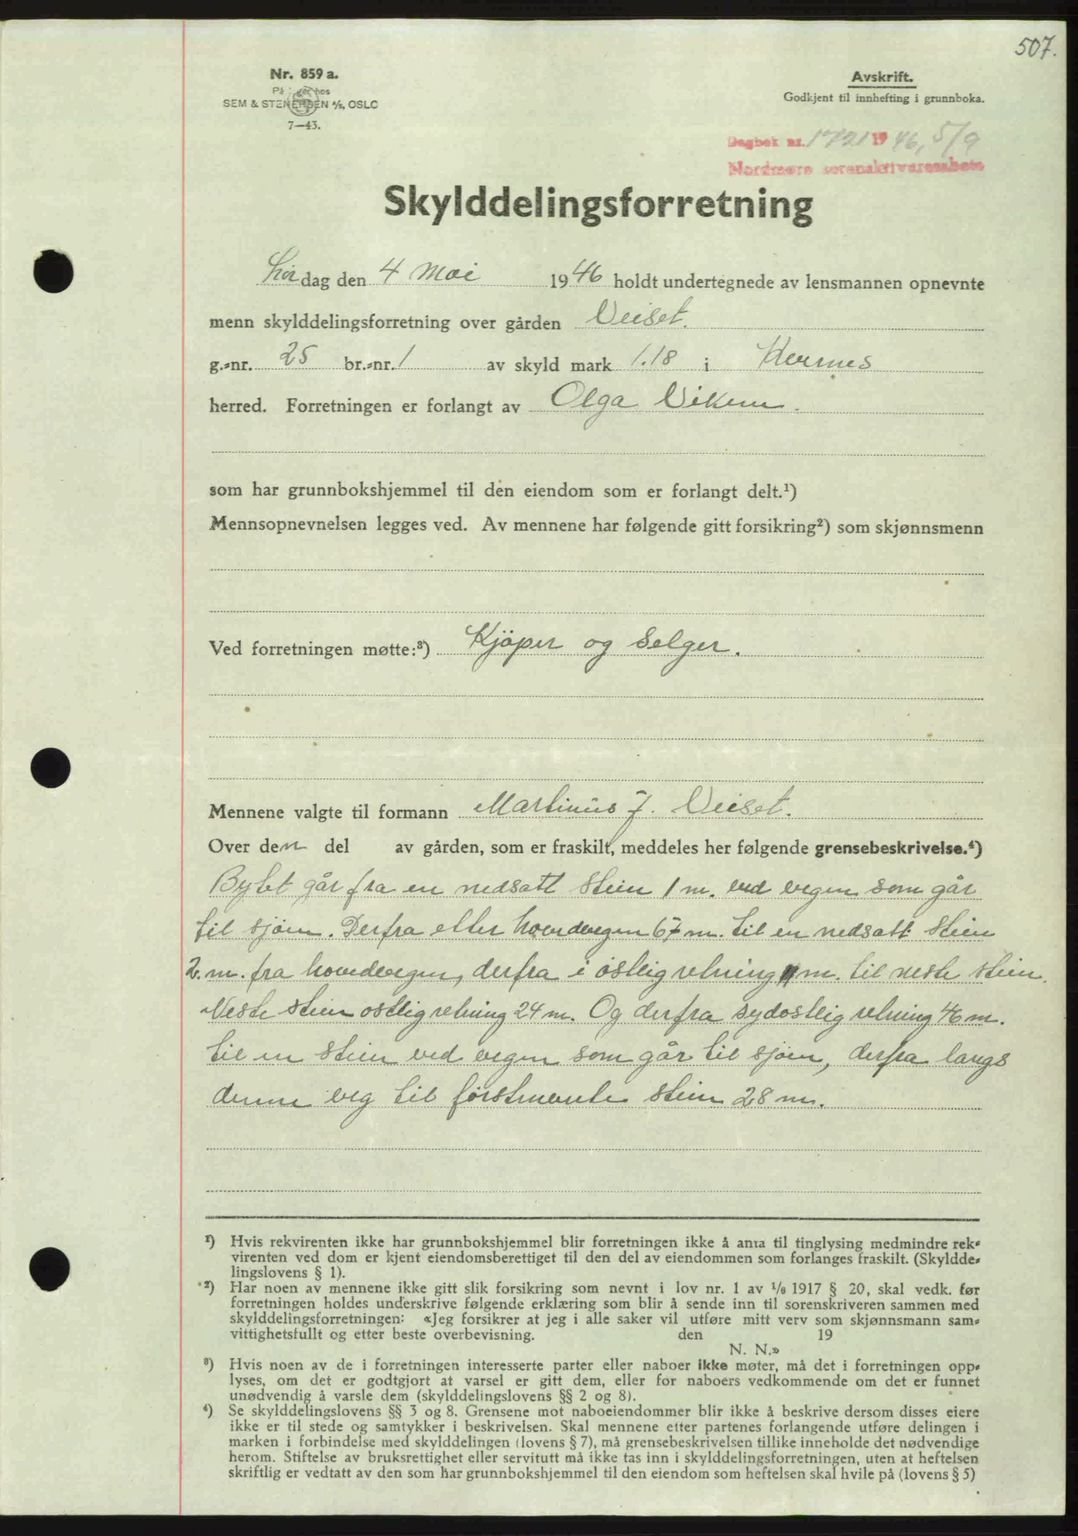 507.
Nr. 859 a.
Avskrift.
SEM & STENERSEN A/S, OSLO
Godkjent til innhefting i grunnboka.
7—43.
Dagbok nr. 1721 19 46, 5/9
Nordmøre sorenskriverembete
Skylddelingsforretning
Lørdag den 4 Mai 1946 holdt undertegnede av lensmannen opnevnte
menn skylddelingsforretning over gården Veiset.
g.-nr. 25 br.-nr. 1 av skyld mark 1.18 i
herred. Forretningen er forlangt av Olga Viken.
som har grunnbokshjemmel til den eiendom som er forlangt delt.¹)
Mennsopnevnelsen legges ved. Av mennene har følgende gitt forsikring²) som skjønnsmenn
Ved forretningen møtte:³) Kjöper og Selger.
Mennene valgte til formann Martinus J. Veiset.
Over den del av gården, som er fraskilt, meddeles her følgende grensebeskrivelse.⁴)
Bytet går fra en nedsatt stein 1 m. ved vegen som går
til sjöen. Derfra etter hovedvegen 67 m. til en nedsatt stein
2. m. fra hovedvegen, derfra i östlig retning m. til neste stein.
Neste stein ostlig retning 24 m. Og derfra sydostlig retning 46 m.
til en stein ved vegen som går til sjöen, derfra langs
denne veg til förstnevnte stein 28 m.
¹) Hvis rekvirenten ikke har grunnbokshjemmel blir forretningen ikke å anta til tinglysing medmindre rek-
virenten ved dom er kjent eiendomsberettiget til den del av eiendommen som forlanges fraskilt. (Skyldde-
lingslovens § 1).
²) Har noen av mennene ikke gitt slik forsikring som nevnt i lov nr. 1 av 1/6 1917 § 20, skal vedk. før
forretningen holdes underskrive følgende erklæring som blir å sende inn til sorenskriveren sammen med
skylddelingsforretningen: «Jeg forsikrer at jeg i alle saker vil utføre mitt verv som skjønnsmann sam-
vittighetsfullt og etter beste overbevisning. den 19
N. N.»
³) Hvis noen av de i forretningen interesserte parter eller naboer ikke møter, må det i forretningen opp-
lyses, om det er godtgjort at varsel er gitt dem, eller for naboers vedkommende om det er funnet
unødvendig å varsle dem (skylddelingslovens §§ 2 og 8).
⁴) Se skylddelingslovens §§ 3 og 8. Grensene mot naboeiendommer blir ikke å beskrive dersom disses eiere
ikke er til stede og samtykker i beskrivelsen. Skal mennene etter partenes forlangende utføre delingen i
marken i forbindelse med skylddelingen (lovens § 7), må grensebeskrivelsen tillike inneholde det nødvendige
herom. Stiftelse av bruksrettighet eller servitutt må ikke tas inn i skylddelingsforretningen, uten at heftelsen
skriftlig er vedtatt av den som har grunnbokshjemmel til den eiendom som heftelsen skal hvile på (lovens § 5)